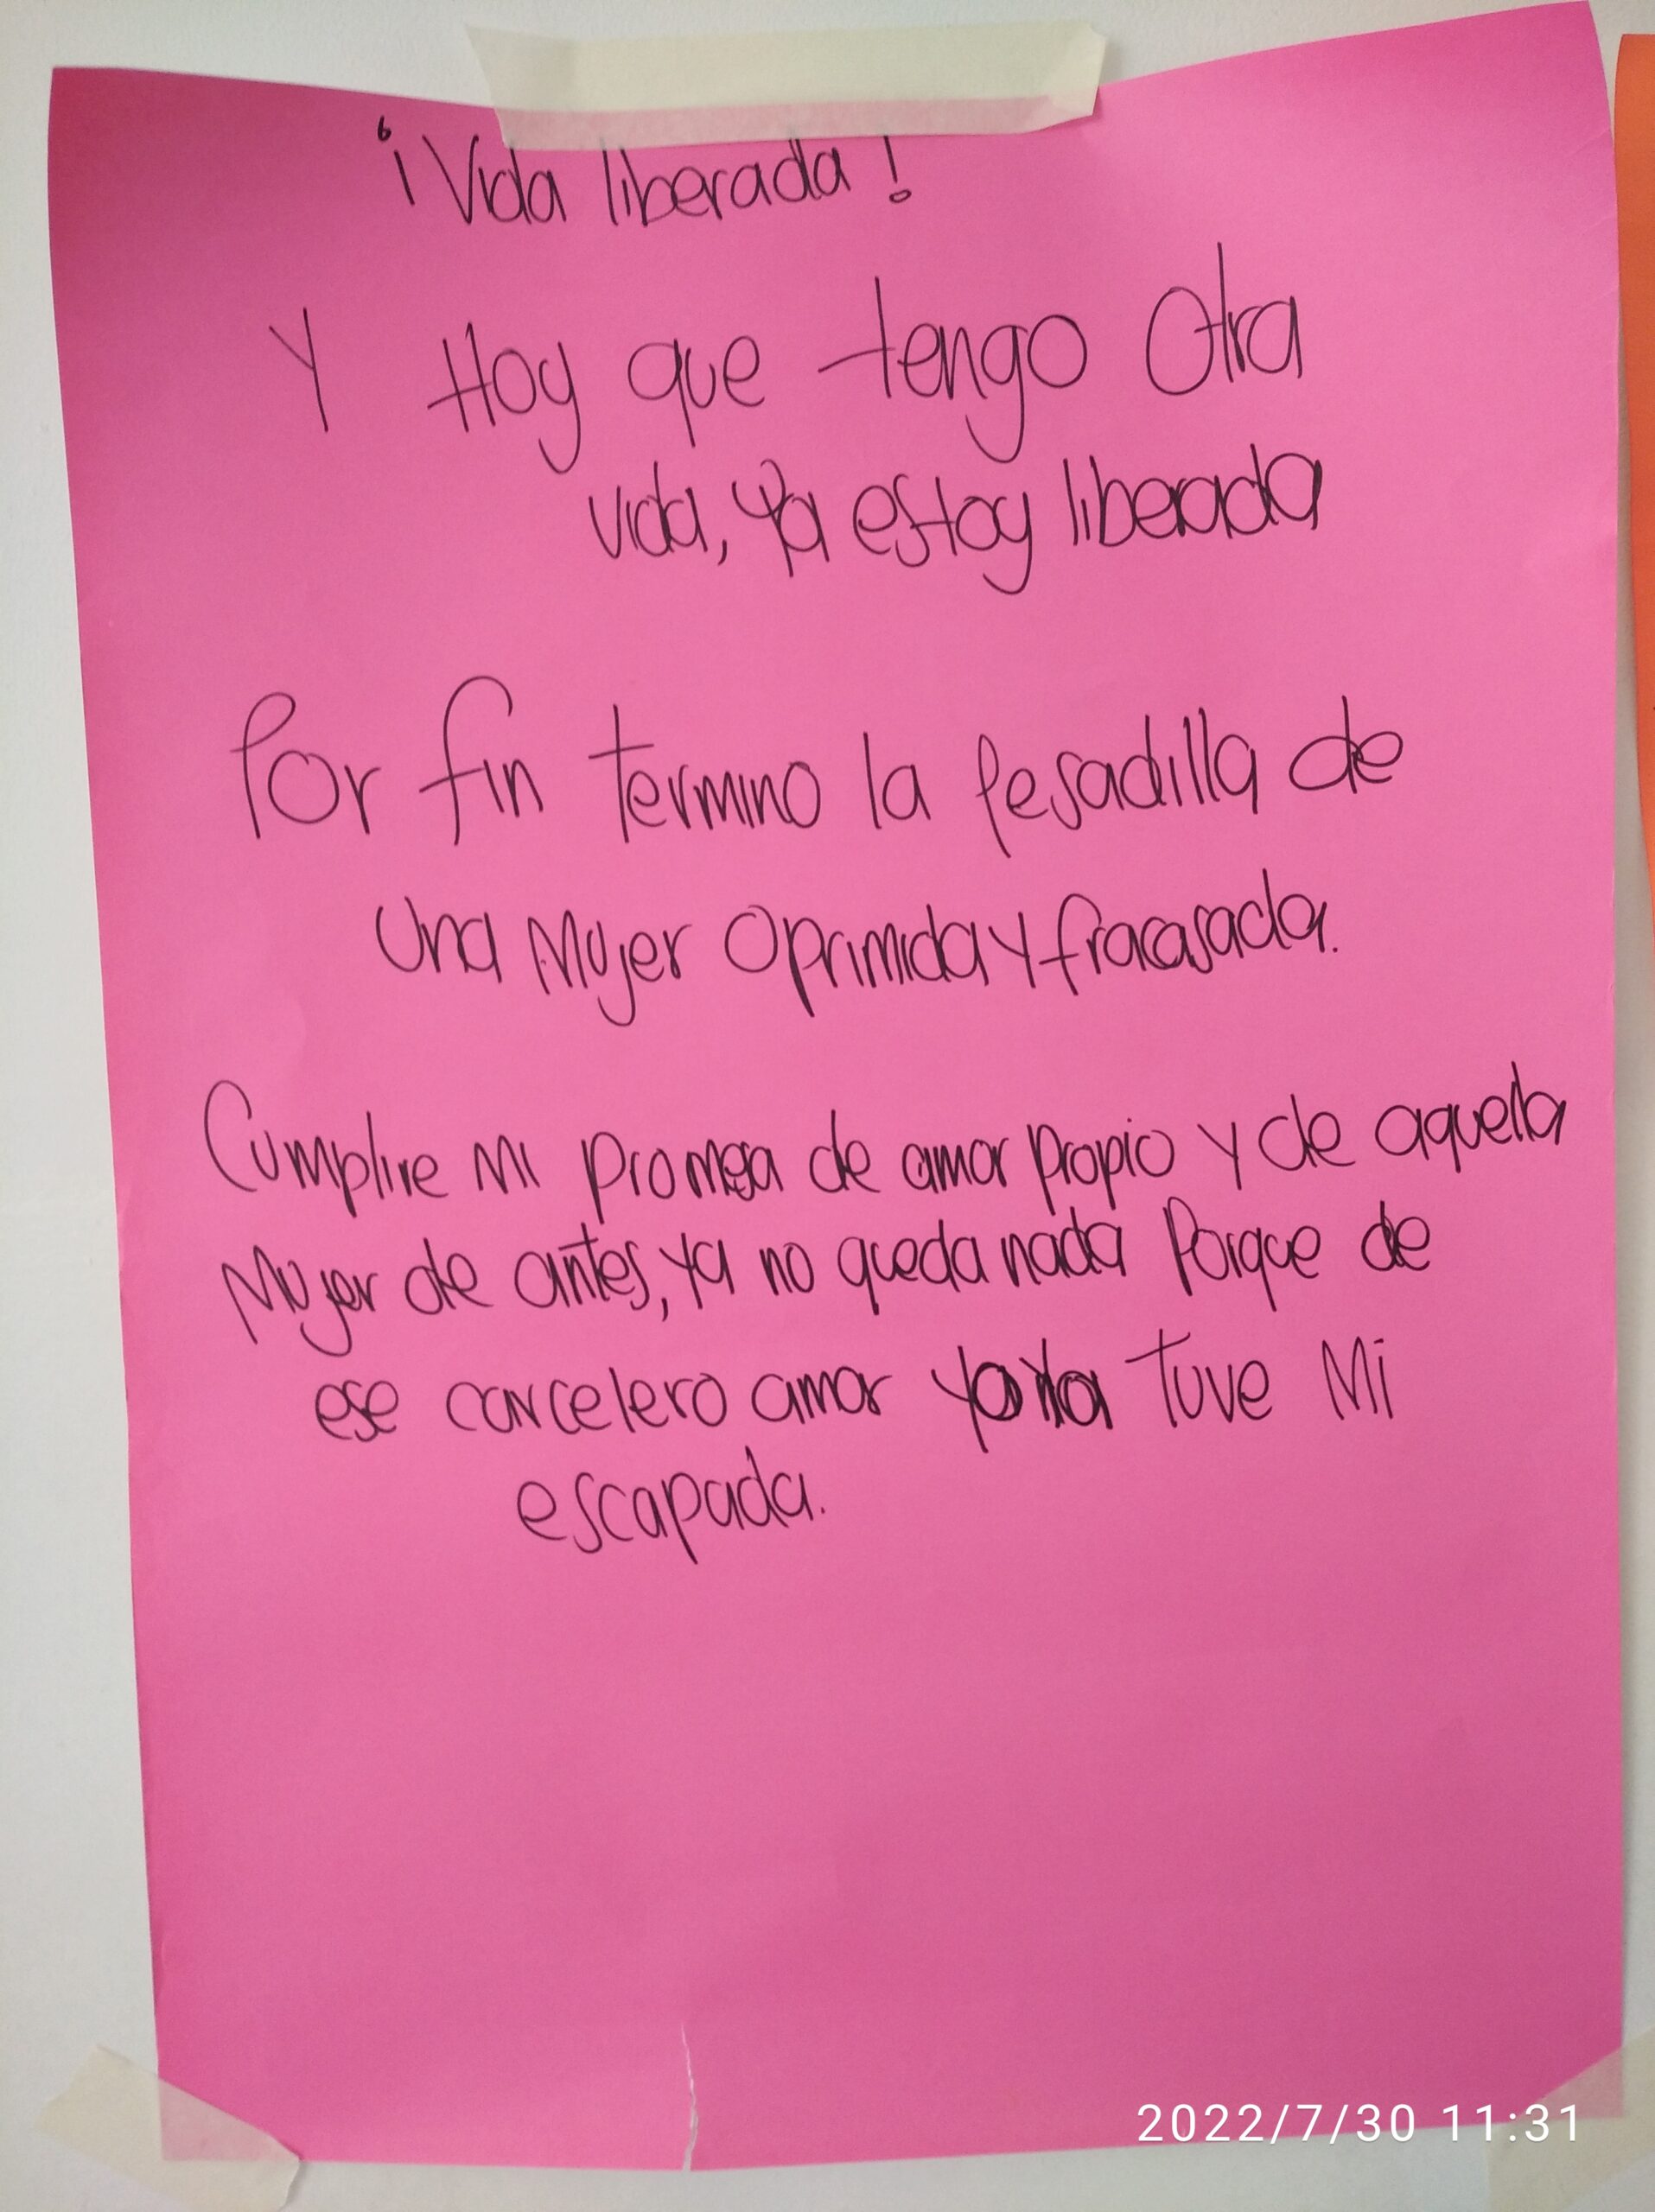 ¡Vida liberada!
Y Hoy que tengo Otra
vida, Ya estoy liberada
Por fin termino la Pesadilla de
Una Mujer Oprimida y fracasada.
Cumplire Mi promesa de amor propio y de aquella
Mujer de antes, ya no queda nada Porque de
ese carcelero amor ya tuve Mi
escapada.
2022/7/30 11:31